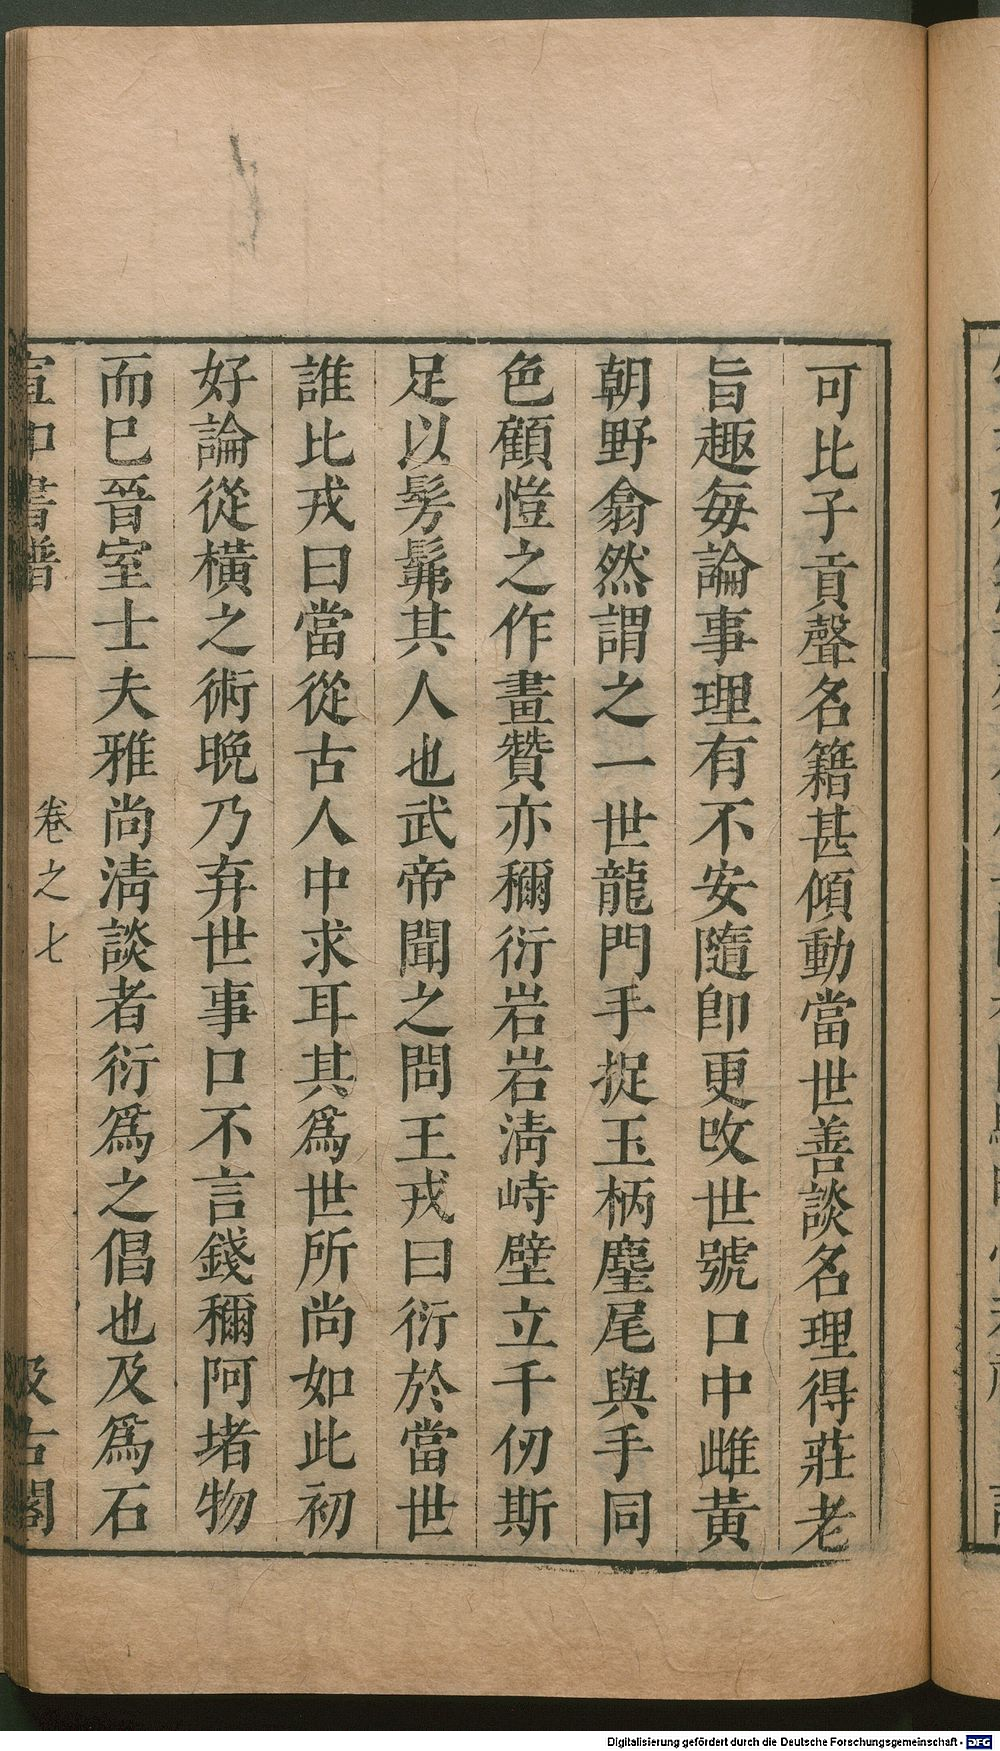 可比子貢聲名籍甚傾動當世善談名理得莊老
旨趣每論事理有不安隨卽更改世號口中雌黃
朝野翕然謂之一世龍門手捉玉柄麈尾與手同
色顧愷之作畫贊亦稱衍岩岩清峙壁立千仞斯
足以髣髴其人也武帝聞之問王戎曰衍於當世
誰比戎曰當從古人中求耳其爲世所尚如此初
好論從橫之術晚乃弃世事口不言錢稱阿堵物
而巳晉室士夫雅尚淸談者衍爲之倡也及爲石
宣和書譜 卷之七 汲古閣
Digitalisierung gefördert durch die Deutsche Forschungsgemeinschaft - DFG